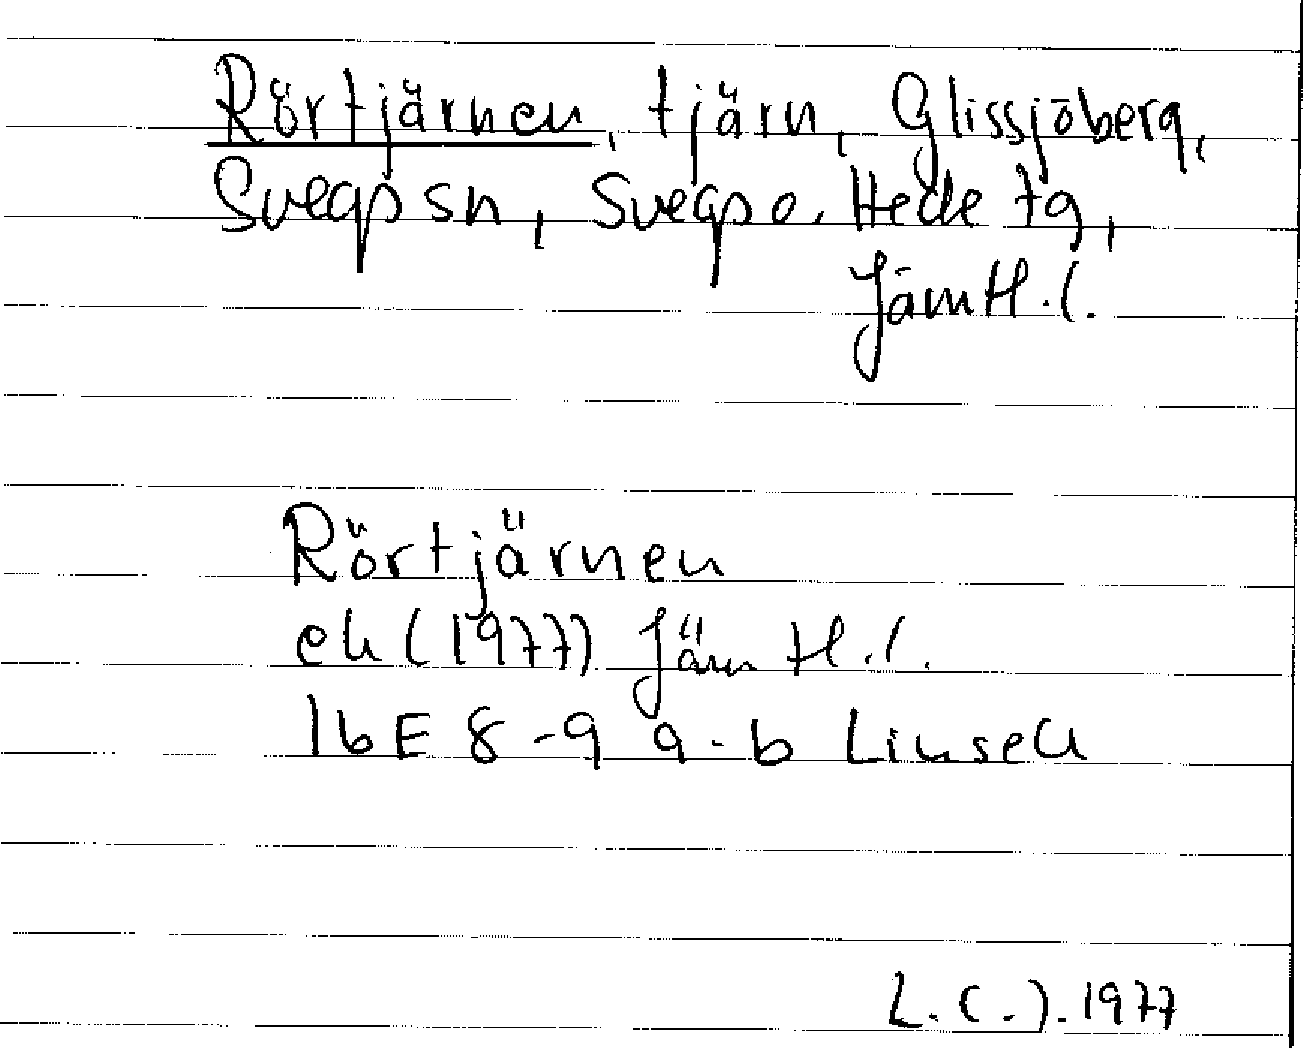 Rörtjärnen, tjärn, Glissjöberg,
Svegs sn, Svegs o. Hede tg,
Jämtl. l.
Rörtjärnen
ek (1977) Jämtl. l.
16E 8-9 a-b Linsell
L. C. J. 1977